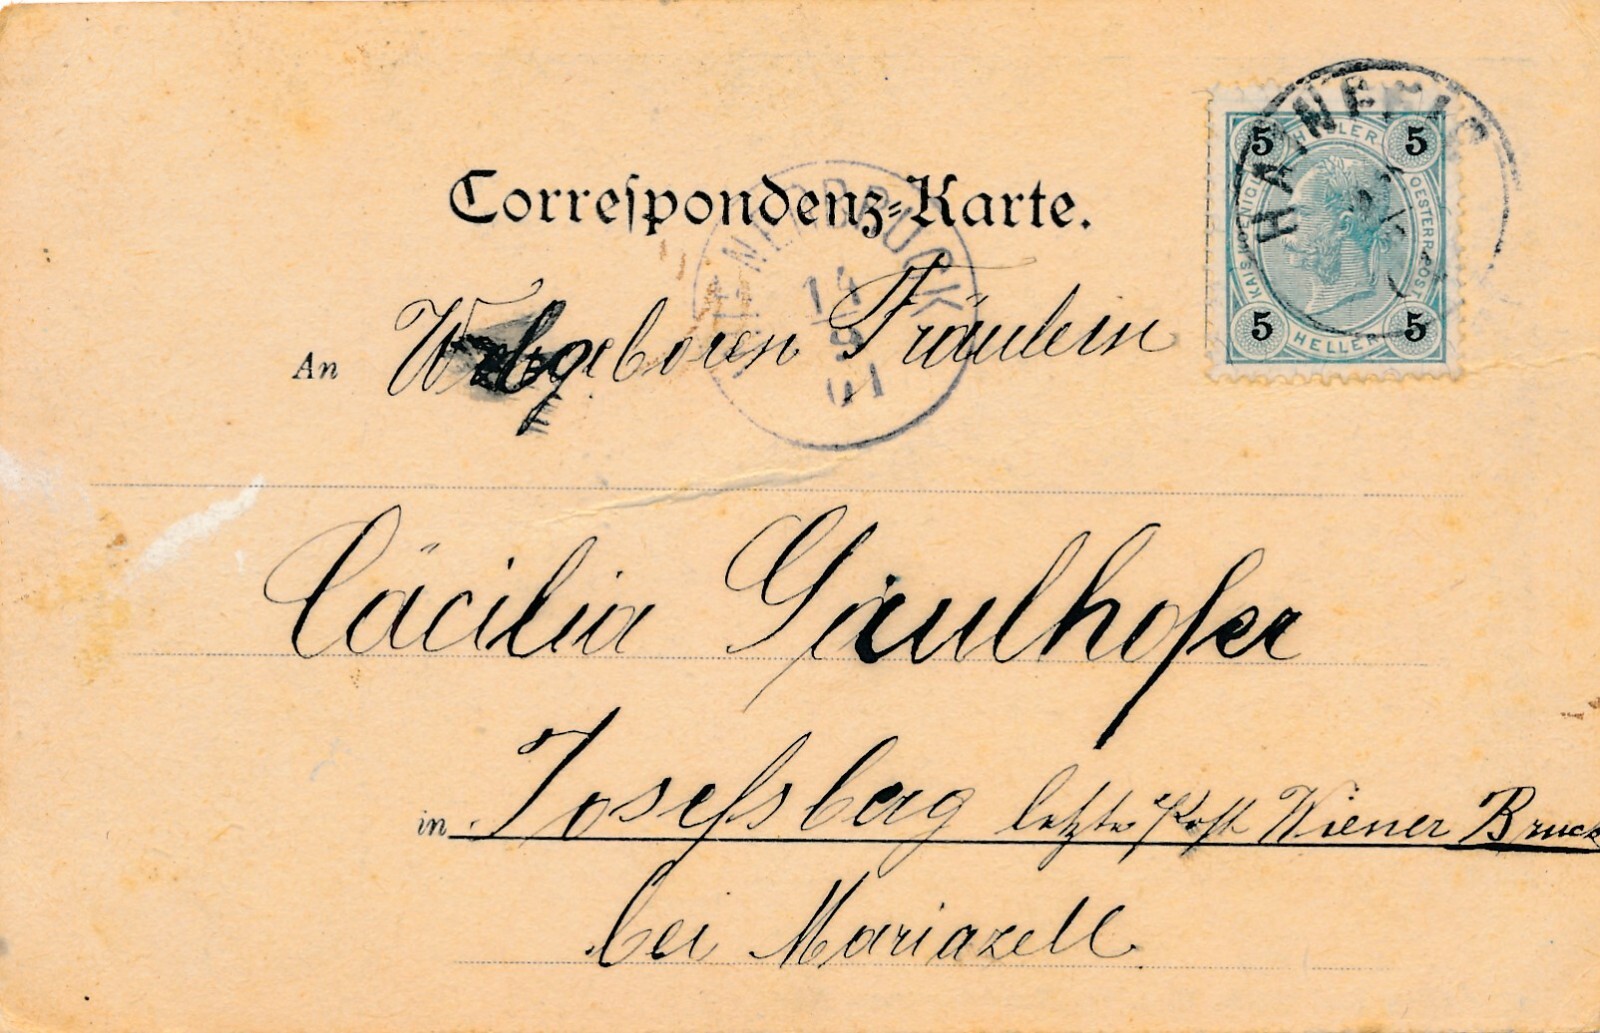 Correspondenz-Karte.
HAINFELD
5 HELLER 5
KAIS. KÖNIGL. OESTERR. POST
5 HELLER 5
WIENERBRUCK
14
9
01
An Wolgeboren Fräulein
Cäcilia Gaulhofer
in Josefsberg letzte Post Wiener Bruck
bei Mariazell